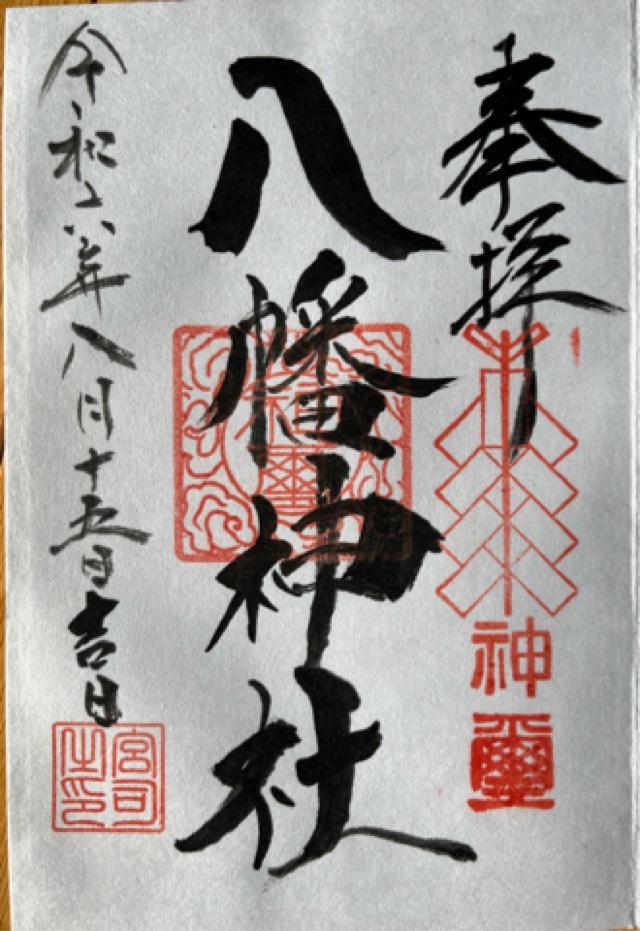 奉拝
八幡神社
令和六年八月十五日吉日
神璽
宮司之印